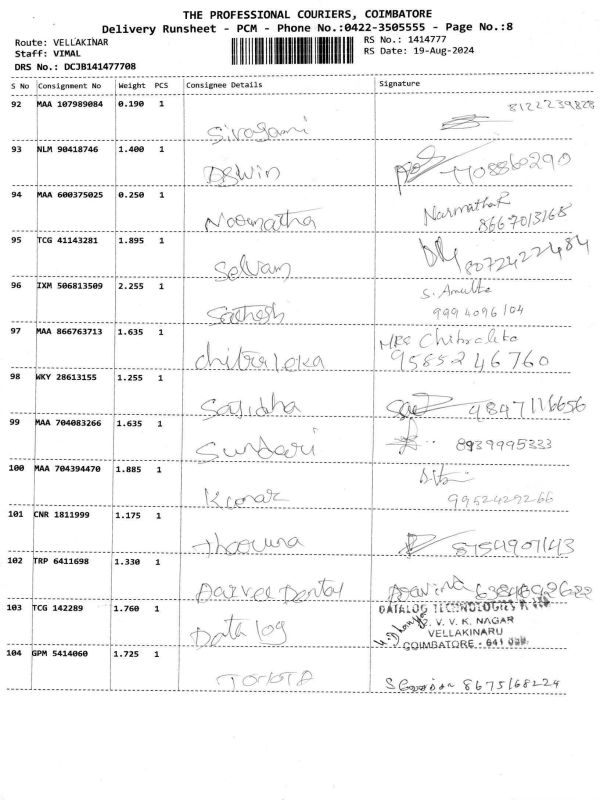 THE PROFESSIONAL COURIERS, COIMBATORE
Delivery Runsheet - PCM - Phone No.:0422-3505555 - Page No.:8
Route: VELLAKINAR
RS No.: 1414777
Staff: VIMAL
RS Date: 19-Aug-2024
DRS No.: DCJB141477708
S No Consignment No Weight PCS Consignee Details Signature
92 MAA 107989084 0.190 1
Sivagami 8122239828
93 NLM 90418746 1.400 1
Aswin 7708860290
94 MAA 600375025 0.250 1
Narmatha Narmatha R
8667013168
95 TCG 41143281 1.895 1
Selvam 8072422484
96 IXM 506813509 2.255 1
Sathesh S. Amutha
9994096104
97 MAA 866763713 1.635 1
chitraleka Mrs Chitraleka
9585246760
98 WKY 28613155 1.255 1
Sajidha 9847116656
99 MAA 704083266 1.635 1
Sundari 8939995333
100 MAA 704394470 1.885 1
Kumar 9952429266
101 CNR 1811999 1.175 1
Tharuna 8754907143
102 TRP 6411698 1.330 1
Dental Aravind
103 TCG 142289 1.760 1
Data log
DATALOG TECHNOLOGIES P LTD
V. V. K. NAGAR
VELLAKINARU
COIMBATORE - 641
104 GPM 5414060 1.725 1
TOYOTA 8675168224